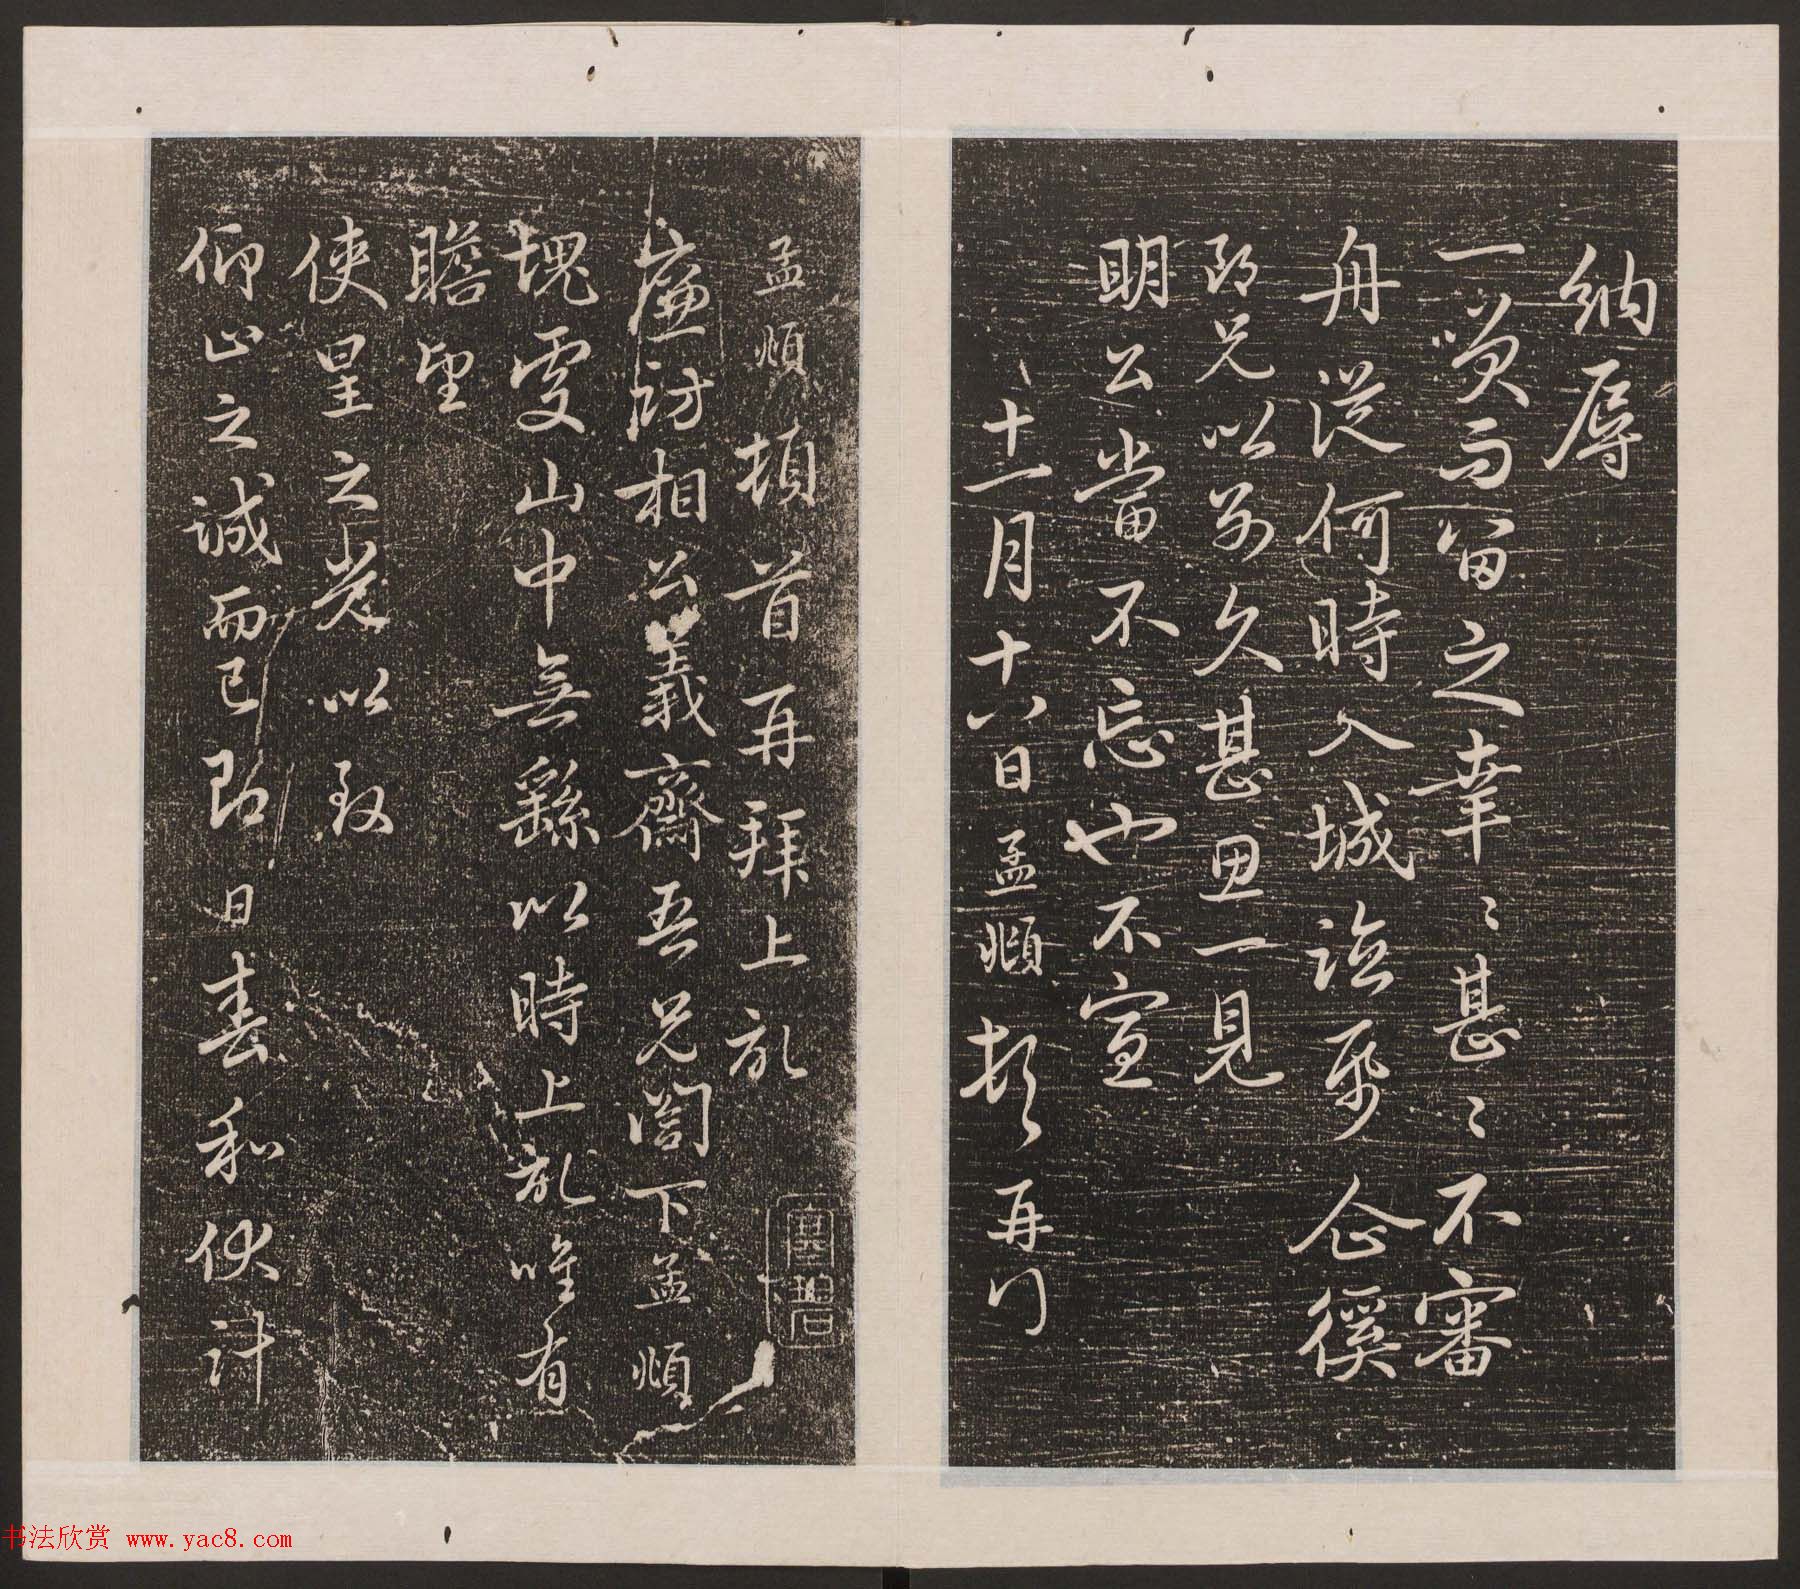 納辱
一笑而留之幸〻甚〻不審
舟從何時入城詣
郎兄以别久甚思一見
明公當不忘也不宣
十一月十六日孟頫頓首再
孟頫頓首再拜上
廉訪相公義齋吾兄閣下孟頫
塊處山中無繇以時上記唯有
瞻望
使星之光以致
仰止之誠而已即日春和伏計
書法欣赏 www.yac8.com